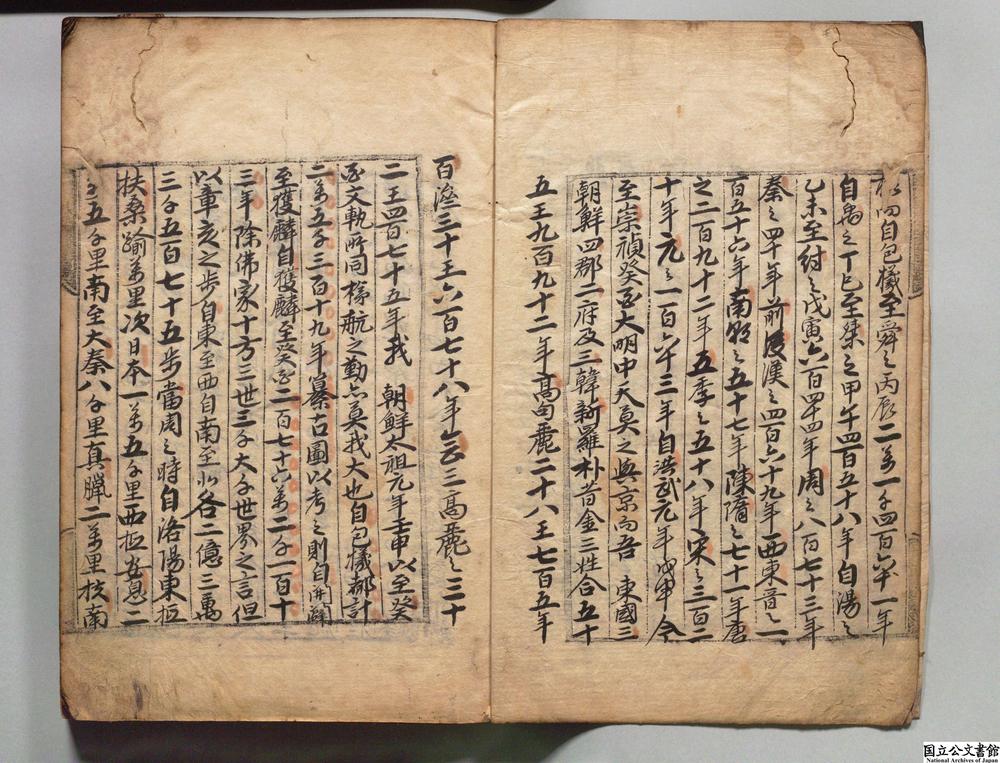 四自包犧至舜之丙辰二萬一千四百六十一年
自禹之丁巳至桀之甲午四百五十八年自湯之
乙未至紂之戊寅六百四十四年周之八百七十三年
秦之四十年前後漢之四百六十九年西東晉之一
百五十六年南朝之五十七年陳隋之七十一年唐
之二百九十二年五季之五十八年宋之三百二
十年元之一百六十三年自洪武元年戊申今
至崇禎癸酉大明中天奠之與京而吾東國三
朝鮮四郡二府及三韓新羅朴昔金三姓合五十
五王九百九十二年高句麗二十八王七百五年
百濟三十王六百七十八年弁三高麗之三十
二王四百七十五年我 朝鮮太祖元年壬申以至癸
酉文軌所同梯航之勤亦莫我大也自包犧都計
二萬五千三百十九年纂古圖以考之則自開
至獲麟自獲麟至癸酉二百七十六萬二千一百十
三年除佛家十方三世三千大千世界之言但
以章亥之步自東至西自南至北各二億三萬
三千五百七十五步當周之時自洛陽東极
扶桑踰萬里次日本一萬五千里西极安息二
五千里南至大秦八千里真臘二萬里极南
国立公文書館
National Archives of Japan